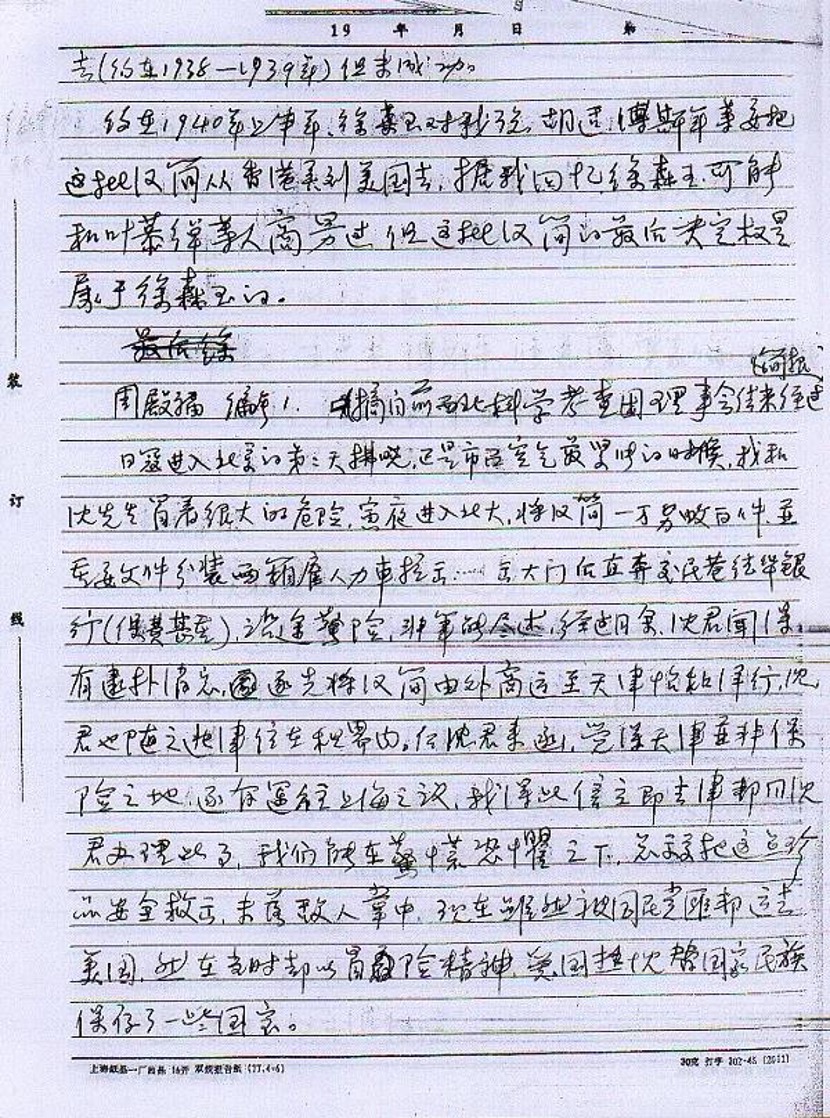 19 年 月 日 第
去(约在1938—1939年)但未成功。
约在1940年上半年,徐森玉对我说,胡适,傅斯年等要把
这批汉简从香港弄到美国去,据我回忆徐森玉,可能
和叶恭绰等人商景过,但这批汉简的最后决定权是
属于徐森玉的。
最后徐
周殿福 编号1. 摘自前西北科学考查团理事会结束经过
(简报)
日寇进入北京的第三天拂晓,正是市面空气最紧张的时候,我和
沈先生冒着很大的危险,寅夜进入北大,将汉简一万另数百件、並
重要文件分装两箱雇人力車拉出……出大门后直奔交民巷德华銀
行(保費甚重),沿途驚险,非筆所能尽述,经过月余,沈君闻得
有遭扑消息,遂先将汉简由外商运至天津怡和洋行,沈
君也随之逃津住在租界内。后沈君来函,觉得天津並非保
险之地,逐有運往上海之议,我得此信立即去津帮同沈
君办理此事,我们能在驚慌恐懼之下,总算把这点珍
品安全救出,未落敌人掌中,现在雖然被国民党匪邦运去
美国,然在当时却以冒险精神,爱国热忱替国家民族
保存了一些国宝。
装
订
线
上海纸品一厂出品 16开 双线报告纸 (77.4-6)
30克 打字 202-45 (2011)